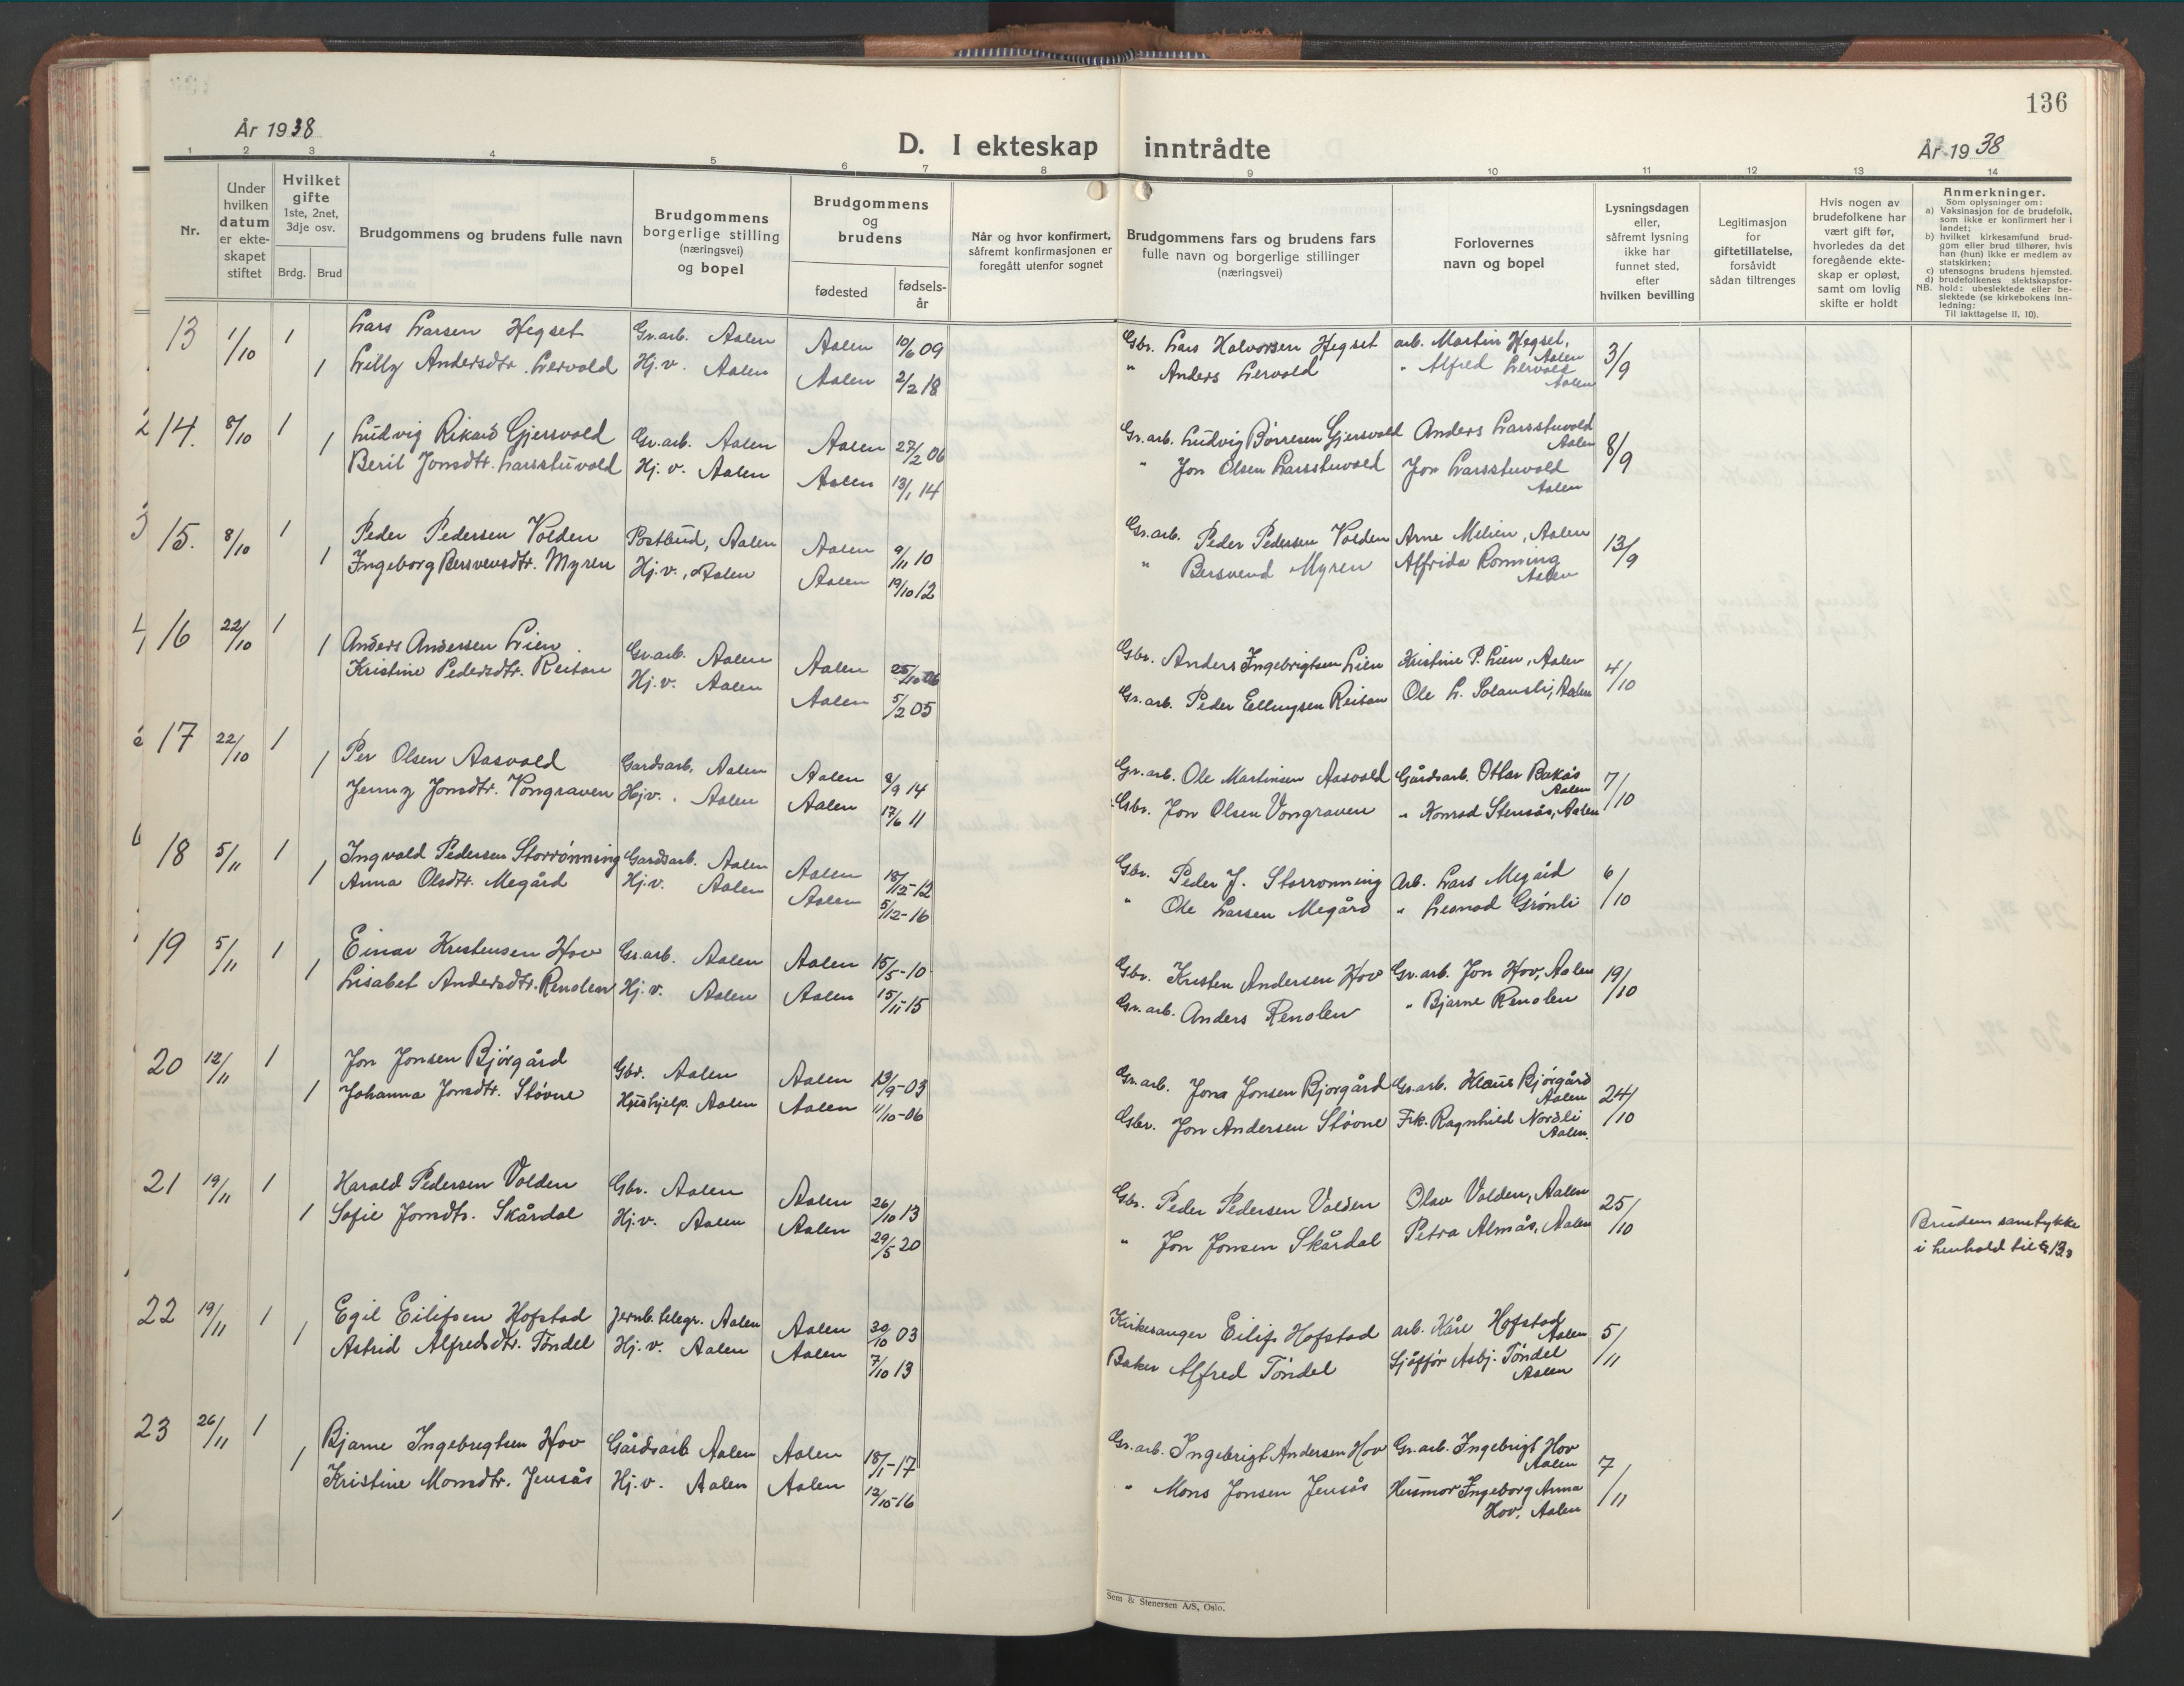 136
År 1938
D. I ekteskap inntrådte
År 1938
1 2 3 4 5 6 7 8 9 10 11 12 13 14
Nr.
Under hvilken datum er ekte-skapet stiftet
Hvilket gifte 1ste, 2net, 3dje osv.
Brdg. Brud
Brudgommens og brudens fulle navn
Brudgommens borgerlige stilling (næringsvei) og bopel
Brudgommens og brudens
fødested
fødsels-år
Når og hvor konfirmert, såfremt konfirmasjonen er foregått utenfor sognet
Brudgommens fars og brudens fars fulle navn og borgerlige stillinger (næringsvei)
Forlovernes navn og bopel
Lysningsdagen eller, såfremt lysning ikke har funnet sted, efter hvilken bevilling
Legitimasjon for giftetillatelse, forsåvidt sådan tiltrenges
Hvis nogen av brudefolkene har vært gift før, hvorledes da det foregående ekte-skap er opløst, samt om lovlig skifte er holdt
Anmerkninger.
Som oplysninger om:
a) Vaksinasjon for de brudefolk, som ikke er konfirmert her i landet;
b) hvilket kirkesamfund brud-gom eller brud tilhører, hvis han (hun) ikke er medlem av statskirken;
c) utensogns brudens hjemsted.
d) brudefolkenes slektskapsfor-hold: ubeslektede eller be-slektede (se kirkebokens inn-ledning:
NB.
Til iakttagelse II, 10).
13 1/10 1 Lars Larsen Hegset Gr.arb. Aalen Aalen 10/6 09 Gbr. Lars Halvorsen Hegset arb. Martin Hegset, Aalen 3/9
1 Lilly Andersdtr. Lervold Hj.v. Aalen Aalen 2/2 18 " Anders Lervold " Alfred Lervold Aalen
14. 8/10 1 Ludvig Rikard Gjersvold Gr.arb. Aalen Aalen 27/2 06 Gr.arb. Ludvig Børresen Gjersvold Anders Larsstuvold Aalen 8/9
1 Berit Jonsdtr. Larsstuvold Hj.v. Aalen Aalen 13/1 14 " Jon Olsen Larsstuvold Jon Larsstuvold Aalen
15. 8/10 1 Peder Pedersen Volden Postbud, Aalen Aalen 9/11 10 Gr.arb. Peder Pedersen Volden Arne Melien, Aalen 13/9
1 Ingeborg Bersvendsdtr. Myren Hj.v., Aalen Aalen 19/10 12 " Bersvend Myren Alfrida Rønning Aalen
16 22/10 1 Anders Andersen Lien Gr.arb. Aalen Aalen 25/10 06 Gbr. Anders Ingebrigtsen Lien Kristine P. Lien, Aalen 4/10
1 Kristine Pedersdtr. Reitan Hj.v. Aalen Aalen 5/2 05 Gr.arb. Peder Ellingsen Reitan Ole L. Solausli, Aalen
17 22/10 1 Per Olsen Aasvold Gardsarb. Aalen Aalen 8/9 14 Gr.arb. Ole Martinsen Aasvold Gårdsarb. Ottar Bakås Aalen 7/10
1 Jenny Jonsdtr. Vongraven Hj.v. Aalen Aalen 17/6 11 Gbr. Jon Olsen Vongraven " Konrad Stensås, Aalen
18 5/11 1 Ingvald Pedersen Storrønning Gardsarb. Aalen Aalen 18/12-12 Gbr. Peder J. Storrønning Arb. Lars Megård 6/10
1 Anna Olsdtr. Megård Hj.v. Aalen Aalen 5/12-16 " Ole Larsen Megård " Grønli
19 5/11 1 Einar Kristensen Hov Gr.arb. Aalen Aalen 15/5-10 Gbr. Kristen Andersen Hov Gr.arb. Jon Hov, Aalen 19/10
1 Lisabet Andersdtr. Renolen Hj.v. Aalen Aalen 15/11-15 Gr.arb. Anders Renolen " Bjarne Renolen
20 12/11 1 Jon Jonsen Bjørgård Gbr. Aalen Aalen 13/9-03 Gr.arb. Jon Jonsen Bjørgård Gr.arb. Klaus Bjørgård Aalen 24/10
1 Johanna Jonsdtr. Støvne Hushjelp. Aalen Aalen 11/10-06 Gbr. Jon Andersen Støvne Frk. Ragnhild Nordli Aalen.
21 19/11 1 Harald Pedersen Volden Gbr. Aalen Aalen 26/10 13 Gbr. Peder Pedersen Volden Olav Volden, Aalen 25/10
1 Sofie Jonsdtr. Skårdal Hj.v. Aalen Aalen 29/5 20 " Jon Jonsen Skårdal Petra Almås, Aalen Brudens samtykke i henhold til § 13.
22 19/11 1 Egil Eilifsen Hofstad Jernb.telegr. Aalen Aalen 30/10 03 Kirkesanger Eilif Hofstad arb. Kåre Hofstad Aalen 5/11
1 Astrid Alfredsdtr. Tøndel Hj.v. Aalen Aalen 7/10 13 Baker Alfred Tøndel Sjåffør Asbj. Tøndel Aalen
23 26/11 1 Bjarne Ingebregtsen Hov Gårdsarb Aalen Aalen 18/1-17 Gr.arb. Ingebrigt Andersen Hov Gr.arb. Ingebrigt Hov Aalen 7/11
1 Kristine Monsdtr. Jensås Hj.v. Aalen Aalen 12/10-16 " Mons Jonsen Jensås Husmor Ingeborg Anna Hov, Aalen
Sem & Stenersen A/S, Oslo.